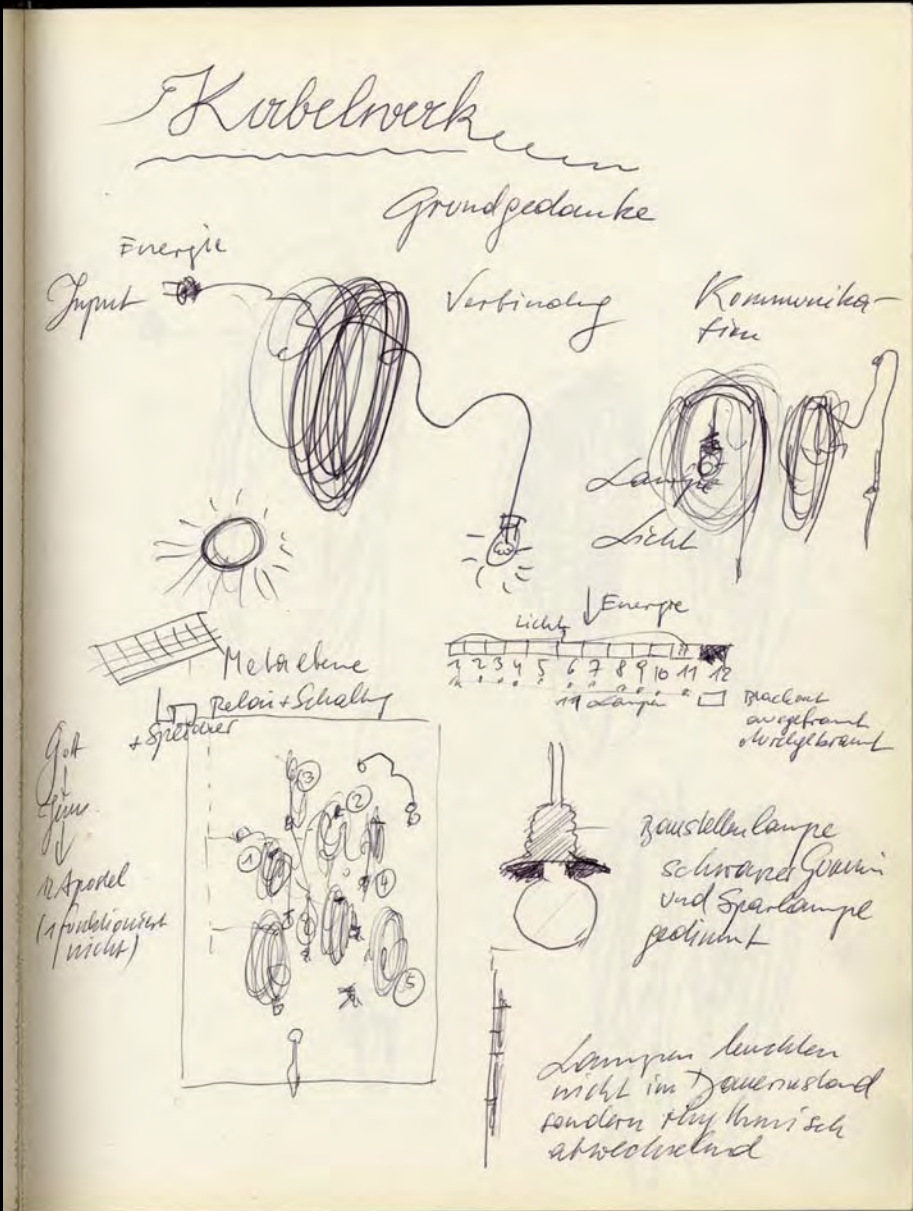 Kabelwerk
Grundgedanke
Energie
Input
Verbindung
Kommunika-
tion
Lampe
Licht
Energie
Licht
1 2 3 4 5 6 7 8 9 10 11 12
11 Lampen
Blackout
ausgebrannt
durchgebrannt
Metaebene
Relais + Schaltung
+ Speicher
Gott
12 Apostel
(1 funktioniert
nicht)
3
2
1
4
5
Baustellenlampe
schwarzer Gummi
und Sparlampe
gedimmt
Lampen leuchten
nicht im Dauerzustand
sondern rhythmisch
abwechselnd